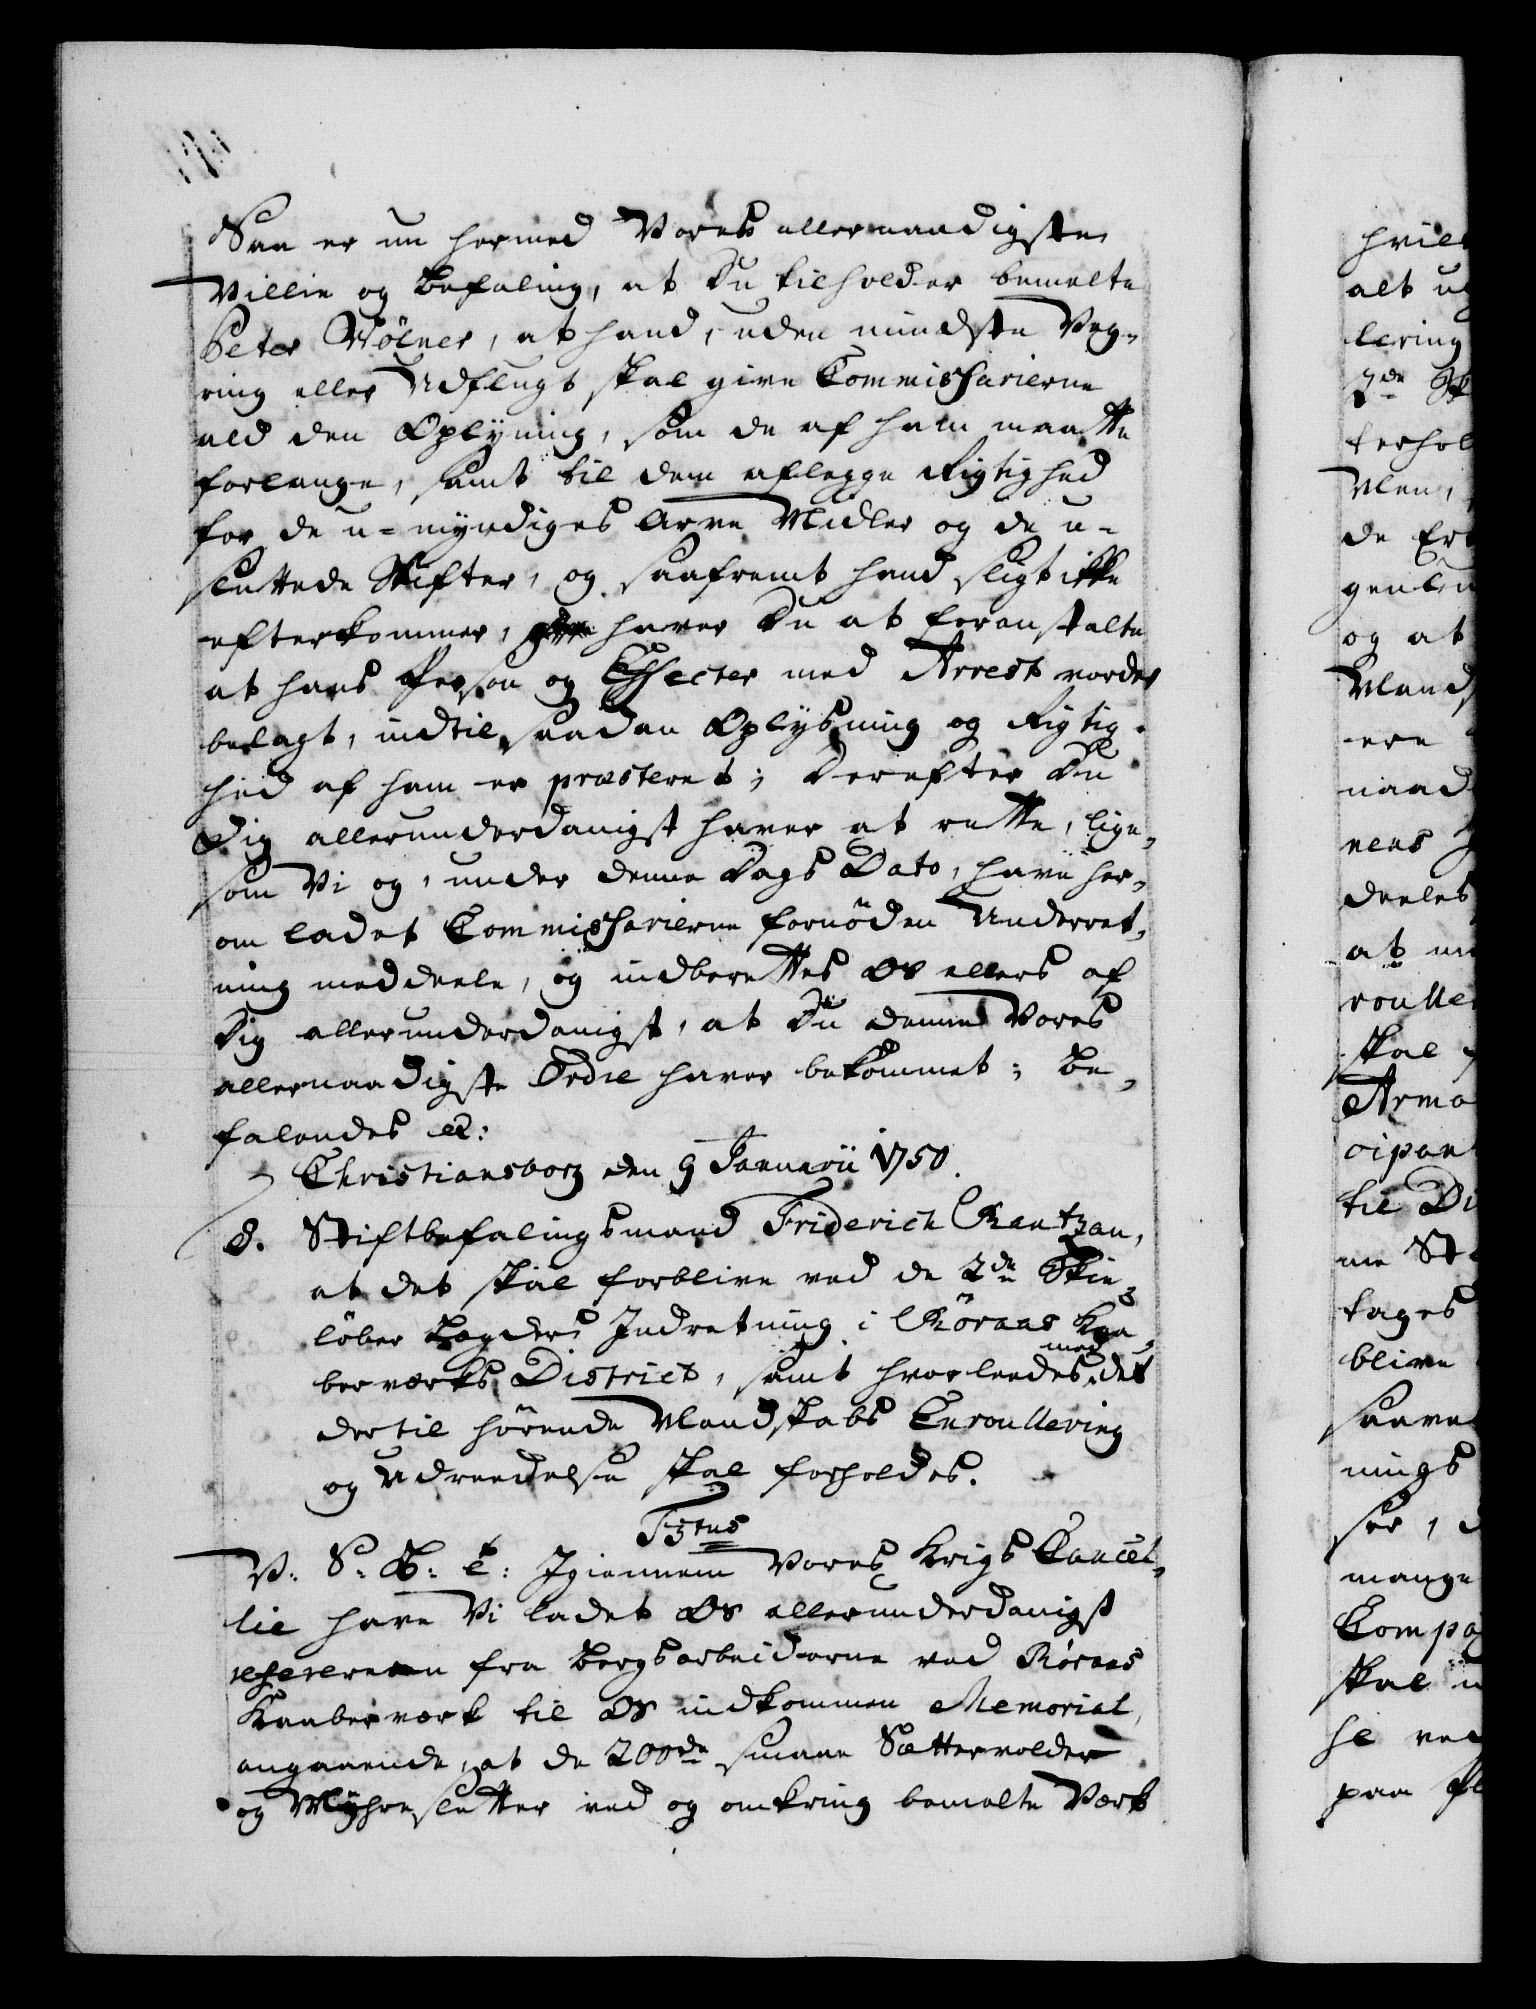 Saa er nu hermed Vores allernaadigste
Villie og Befaling, at Du tilholder bemelte
Peter Wölner, at hand, uden mindste Veg-
ring eller Udflugt skal give Commissarierne
ald den Oplysning, som de af ham maatte
forlange, samt til dem aflegge Rigtighed
for de u-myndiges Arve Midler og de u-
sluttede Skifter, og saafremt hand sligt ikke
efterkommer, haver Du at foranstalte
at hans Person og Effecter med Arrest vorder
belagt, indtil saadan Oplysning og Rigtig-
hed af ham er præsteret; Derefter Du
Dig allerunderdanigst haver at rette, lige-
som Vi og, under denne Dags Dato, have her-
om ladet Commissarierne fornöden Underret-
ning meddeele, og indberettes Os ellers af
Dig allerunderdanigst, at Du denne Vores
allernaadigste Ordre haver bekommet; Be-
falendes etc:
Christiansborg den 9 Januarii 1750.
d. Stiftbefalingsmand Friderich Rantzau,
at det skal forblive ved de 2de Skie-
löber Bögders Indretning i Röraas Kaa-
berværks District, samt hvorleedes med det
dertil hörende Mandskabs Enroullering
og Udreedelse skal forholdes.
F5tus
V: S: G: T: Igiennem Vores Krigs Cancel-
lie have Vi ladet Os allerunderdanigst
referere en fra Bergsarbeiderne ved Röraas
Kaaberværk til Os indkommen Memorial,
angaaende, at de 200de smaae Sættervolder
og Myhreslætter ved og omkring bemelte Værk
hvile
alt u
lering
7de
terhol
Men,
de Er
gent
og at
Mands
ere
naad
nens
deeles
at m
roulle
skal
Arme
cipan
til Di
me St
tages
blive
saave
nings
ser, d
mange
Compag
skal
se ved
paa